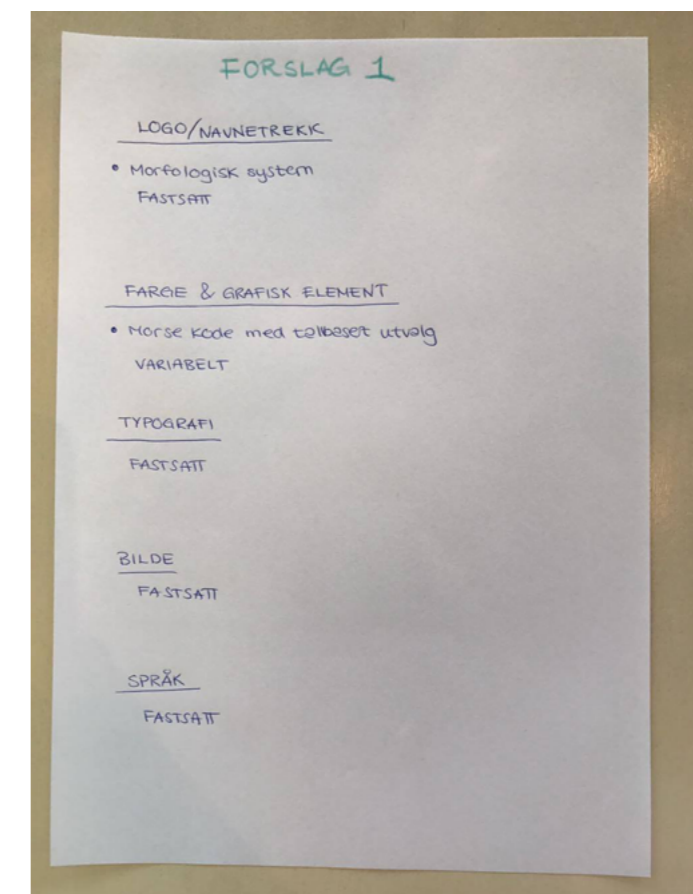 FORSLAG 1
LOGO/NAVNETREKK
• Morfologisk system
FASTSATT
FARGE & GRAFISK ELEMENT
• Morse kode med tallbasert utvalg
VARIABELT
TYPOGRAFI
FASTSATT
BILDE
FASTSATT
SPRÅK
FASTSATT